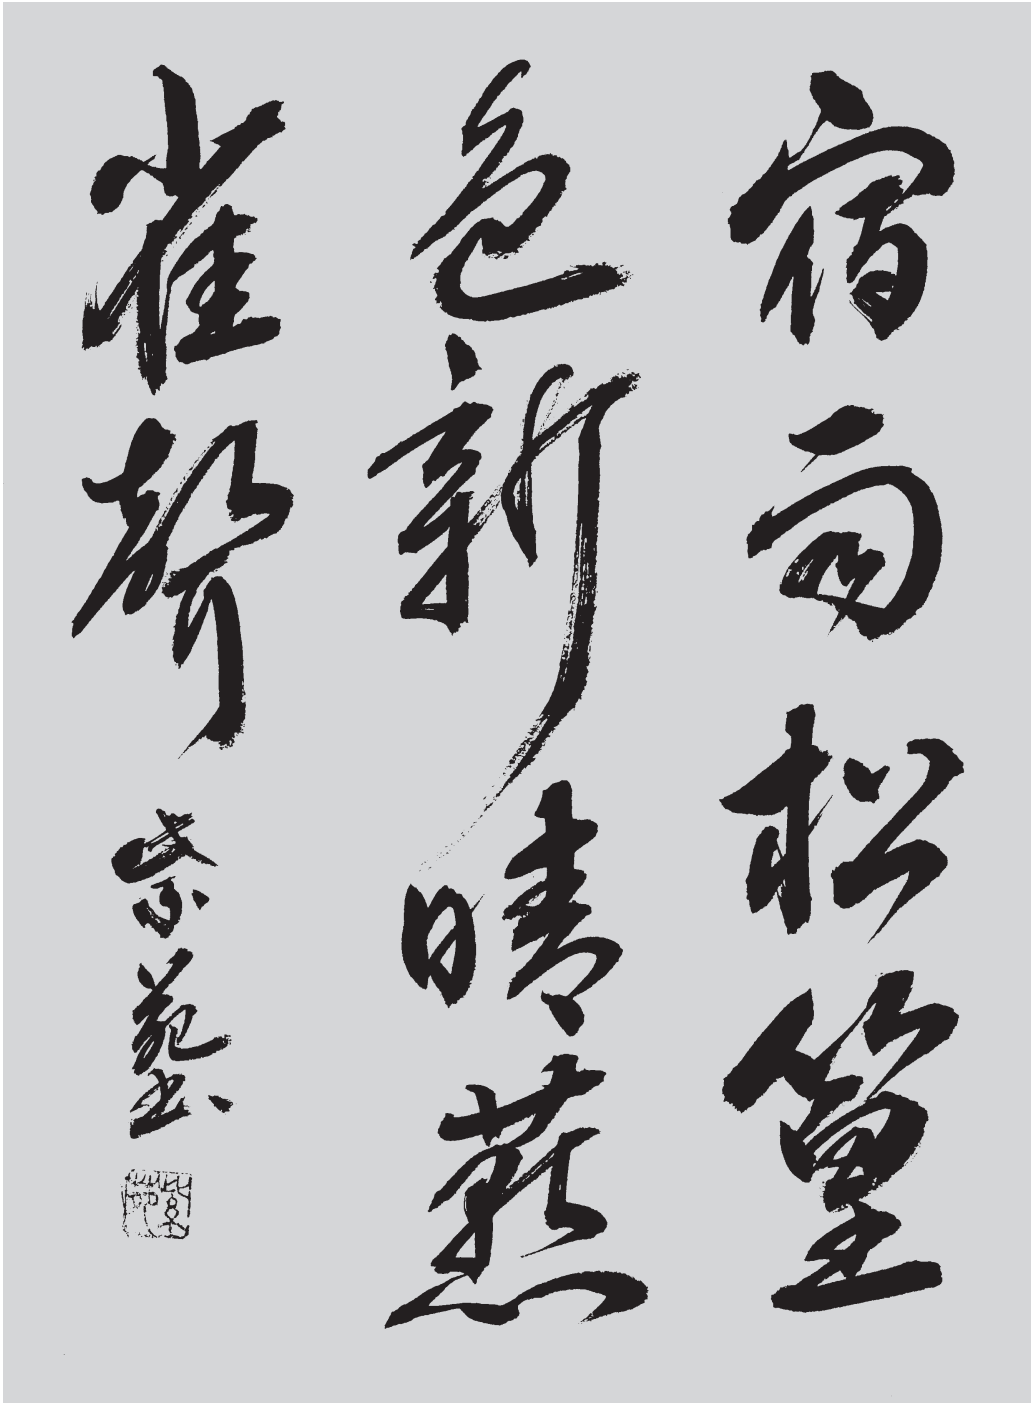 宿雨松篁
色新晴燕
雀聲